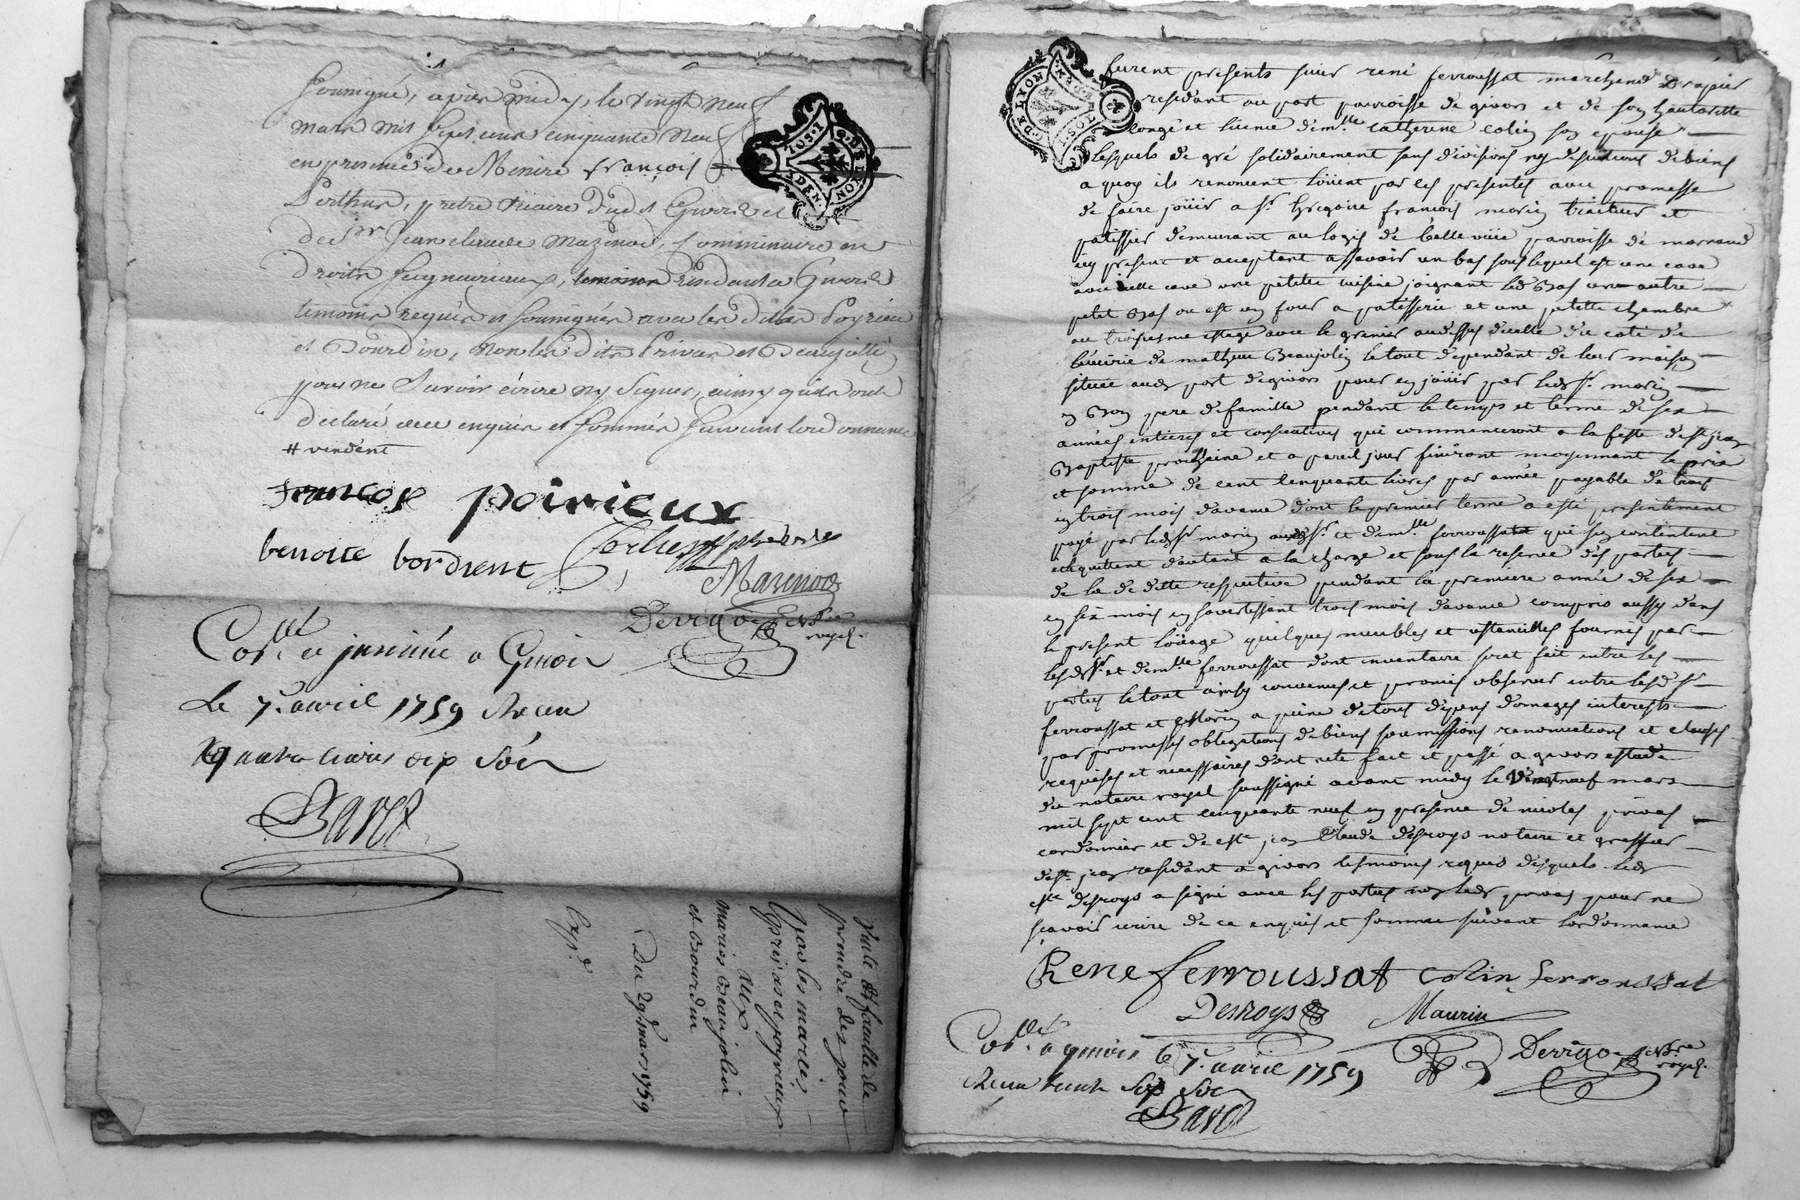 soussigné, apres midy, le vingt neuf
mars mil sept cent cinquante neuf
en presence de Messire françois
prêtre vicaire dud. Givors et
de Sr Jean claude Mazenod, Commissaire en
droits seigneuriaux, residants a Givors
temoins requis et soussignés avec lesdits Poyrieu
et Bourdin, non lesdits Privas et Beaujollin
pour ne savoir écrire ny signer, ainsy qu'ils ont
declaré de ce enquis et sommés suivant l'ordonnance
# vendent
francois poirieux
benoite bordient
Mazenod
Derigo Nre royal.
Colle a Givors
Le 7e avril 1759 Receu
quatre livres dix sols
Bavet
Vente
par les mariés
mariés Beaujolin
et Bourdin
Du 29 mars 1759
Expé
DE LYON
furent presents sieur rené ferroussat marchand drapier
residant au port parroisse de givors et de son hautorité
congé et licence demlle catherine colin son epouse
lesquels de gré solidairement sans division ny discution de biens
a quoy ils renoncent loüent par ces presentes avec promesse
de faire joüir a sr gregoire françois morin traiteur et
patissier demeurant au logis de belle viüe parroisse de
icy present et acceptant assavoir un bas sous lequel est une cave
avec cave une petite cuisine joignant led bas un autre
petit bas ou est un four a patisserie et une petite chambre
au troisieme estage avec le grenier audessus d'icelle du coté de
l'écurie de mathieu Beaujolin le tout dependant de leur maison
située aud port de givors pour en joüir par ledsr morin
en bon pere de famille pendant le temps et terme de six
années entieres et consecutives qui commenceront a la feste de st jean
Baptiste prochaine et a pareil jour finiront moyennant le prix
et somme de cent cinquante livres par année payable de trois
en trois mois d'avance dont le premier terme a esté presentement
payé par ledsr morin audsr et demlle ferroussat qui s'en contentent
et quittent d'autant a la charge et sous la reserve des parties
de la dedite respective pendant la premiere année de six
en six mois en s'avertissant trois mois d'avance compris aussy dans
le present loüage quelques meubles et ustencilles fournis par
lesdsr et demlle ferroussat dont inventaire serat fait entre les
parties le tout ainsy convenu et promis observer entre lesdsr
ferroussat et Morin a peine de tous depens domages interests
par promesses obligations de biens soumissions renonciations et clauses
requises et necessaires dont acte fait et passé a givors estude
du notaire royal soussigné avant midy le vingt neuf mars
mil sept cent cinquante neuf en presence de nicolas privas
cordonnier et de jean Claude desroys notaire et greffier
residant a givors tesmoins requis desquels led
desroys a signé avec les parties non led privas pour ne
sçavoir ecrire de ce enquis et sommé suivant l'ordonnance
Rene ferroussat colin ferroussat
Desroys Maurin
Derigo Nre royal.
Colle a givors le 7e avril 1759
Receu sols
Bavet